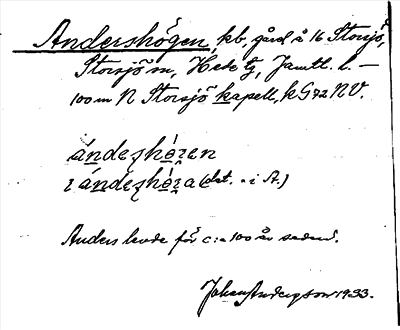 Andershögen, kb, gård å 16 Storsjö,
Storsjö sn, Hede tg, Jämtl. l. —
100 m N Storsjö kapell, k G 72 NV.
ándeʂhö̀ɡen
i ándeʂhö̀ɡa (dat. - i A.)
Anders levde för c:a 100 år sedan.
Johan Anderson 1933.